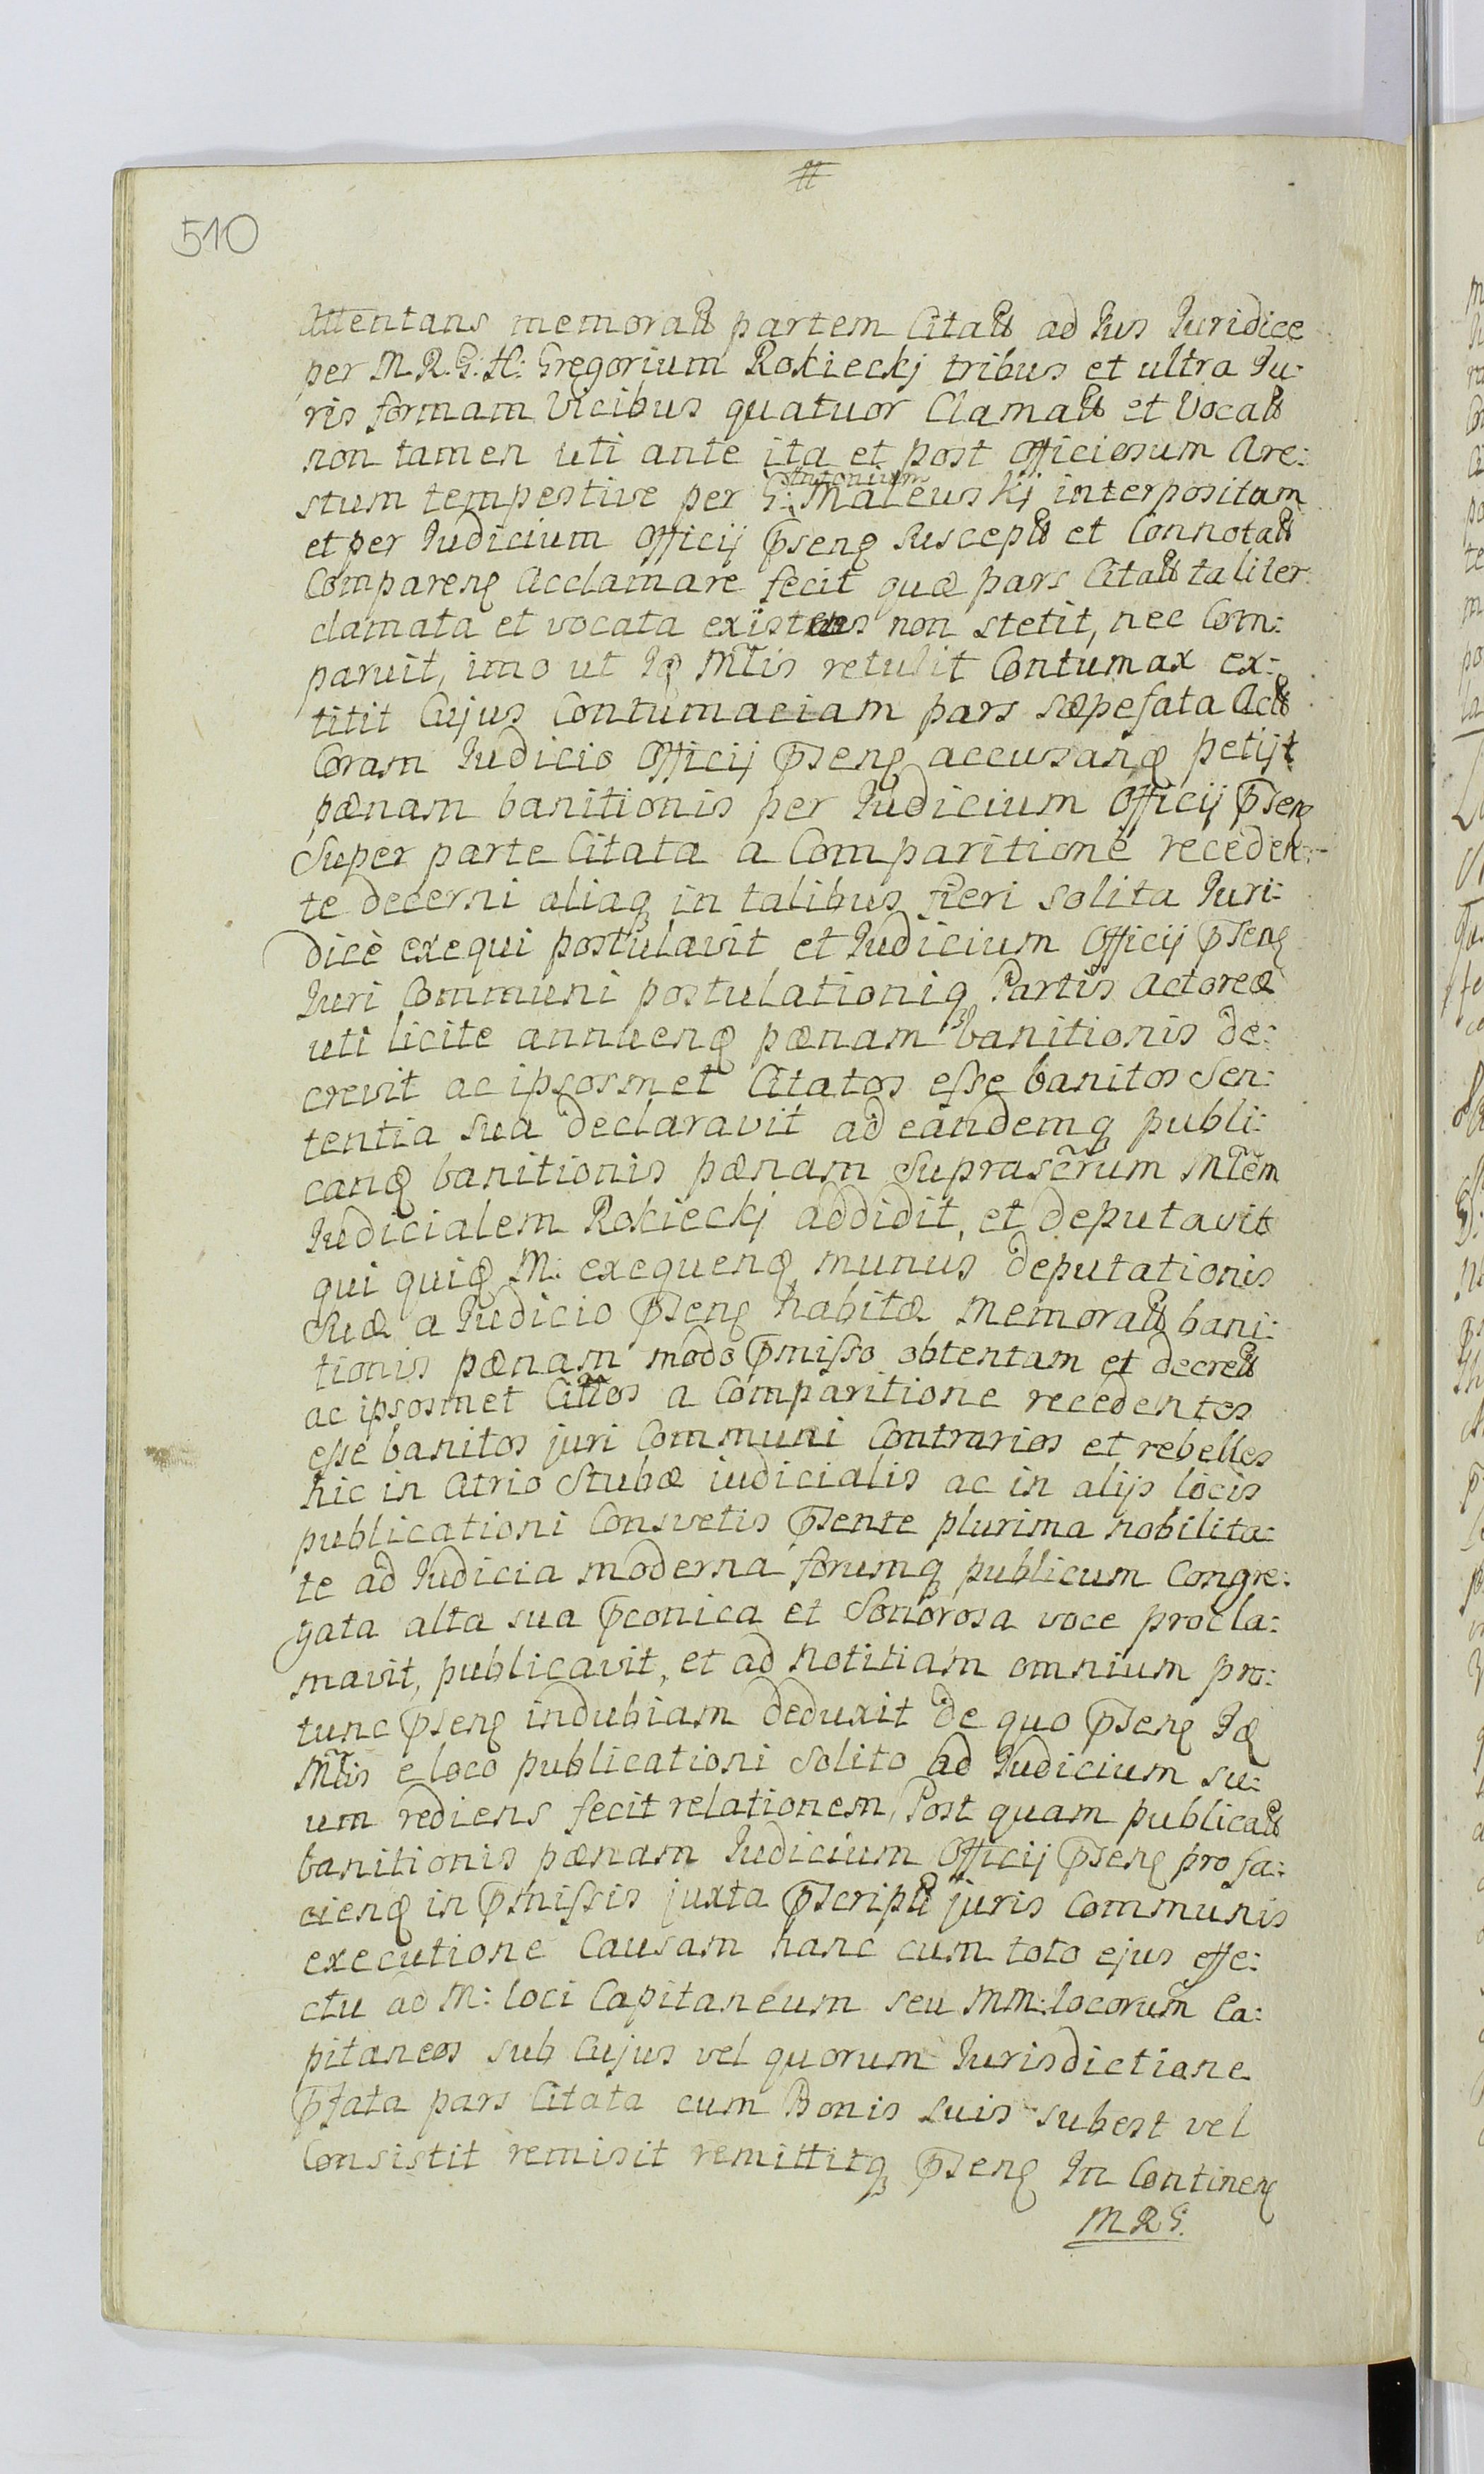 #
510
Attentans memoratt partem Citatt ad Jus Juridice
per M. R. G: H: Gregorium Rokieckj tribus et ultra Ju:
ris formam Vicibus quatuor Clamatt et Vocatt
non tamen uti ante ita et post Officiosum Are:
Antonium
stum tempestive per G: Maleuskij interpositum
et per Judicium Officij p̄senꝗ Susceptt et Connotatt
Comparenꝗ Acclamare fecit quæ pars Citatt taliter
clamata et vocata existens non stetit, nec Com:
paruit, imo ut Jꝗ M̄tis retulit Contumax ex:
titit Cujus Contumaciam pars sæpefata Actt
Coram Judicio Officij p̄senꝗ accusanꝗ petijt
pænam banitionis per Judicium Officij p̄senꝗ
Super parte Citata a Comparitione receden:
te decerni aliaqꝫ in talibus fieri solita Juri:
dicè exequi postulavit et Judicium Officij p̄senꝗ
Juri Communi postulationiqꝫ Partis Actoreæ
uti licite annuenꝗ pænam banitionis de:
crevit ac ipsosmet Citatos esse banitos Sen:
tentia sua declaravit ad eandemqꝫ publi:
canꝗ banitionis pænam Suprascr̃um M̄tem
Judicialem Rokieckj addidit, et deputavit
qui quiꝗ M. exequenꝗ munus deputationis
Suæ a Judicio p̄senꝗ habitæ memoratt bani:
tionis pænam modo p̄misso obtentam et decrett
ac ipsosmet Cittos a Comparitione recedentes
esse banitos juri Communi Contrarios et rebelles
hic in Atrio Stubæ iudicialis ac in alijs locis
publicationi Consvetis p̄sente plurima nobilita:
te ad Judicia moderna forumqꝫ publicum Congre:
gata alta sua p̄conica et Sonorosa voce procla:
mavit, publicavit, et ad notitiam omnium pro:
tunc p̄senꝗ indubiam deduxit de quo p̄senꝗ Jꝗ
M̄tis e loco publicationi Solito ad Judicium su:
um rediens fecit relationem, Post quam publicatt
banitionis pænam Judicium Officij p̄senꝗ pro fa:
cienꝗ in p̄missis juxta p̄scriptt juris Communis
executione Causam hanc cum toto ejus effe:
ctu ad M: loci Capitaneum seu MM: locorum Ca:
pitaneos sub Cujus vel quorum Jurisdictione
p̄fata pars Citata cum Bonis suis subest vel
Consistit remisit remittitqꝫ p̄senꝗ In Continenꝗ
M R G.